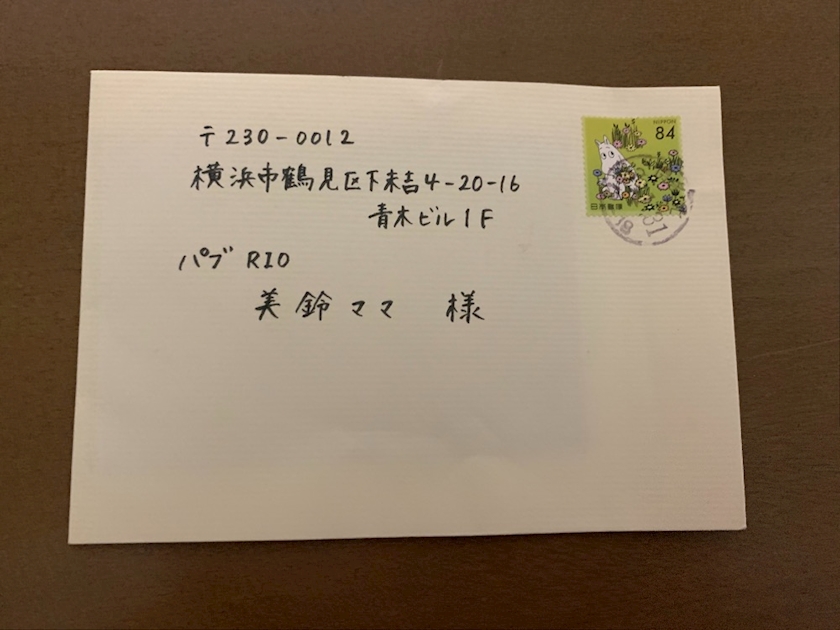 〒230-0012
横浜市鶴見区下末吉4-20-16
青木ビル1F
パブ RIO
美鈴ママ 様
NIPPON
84
日本郵便
31
18